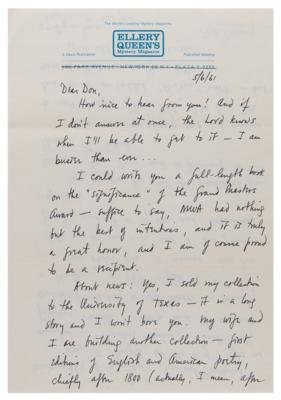 The World's Leading Mystery Magazine
ELLERY
QUEEN'S
Mystery Magazine
A Davis Publication
Published Monthly
PARK AVENUE • NEW YORK
5/6/61
Dear Don,
How nice to hear from you! And if
I don't answer at once, the Lord knows
when I'll be able to get to it — I am
busier than ever...
I could write you a full-length book
on the "significance" of the Grand Masters
Award — suffice to say, MWA had nothing
but the best of intentions, and it is truly
a great honor, and I am of course proud
to be a recipient.
About news: Yes, I sold my collection
to the University of Texas — it is a long
story and I won't bore you. My wife and
I are building another collection — first
editions of English and American poetry,
chiefly after 1800 (actually, I mean, after